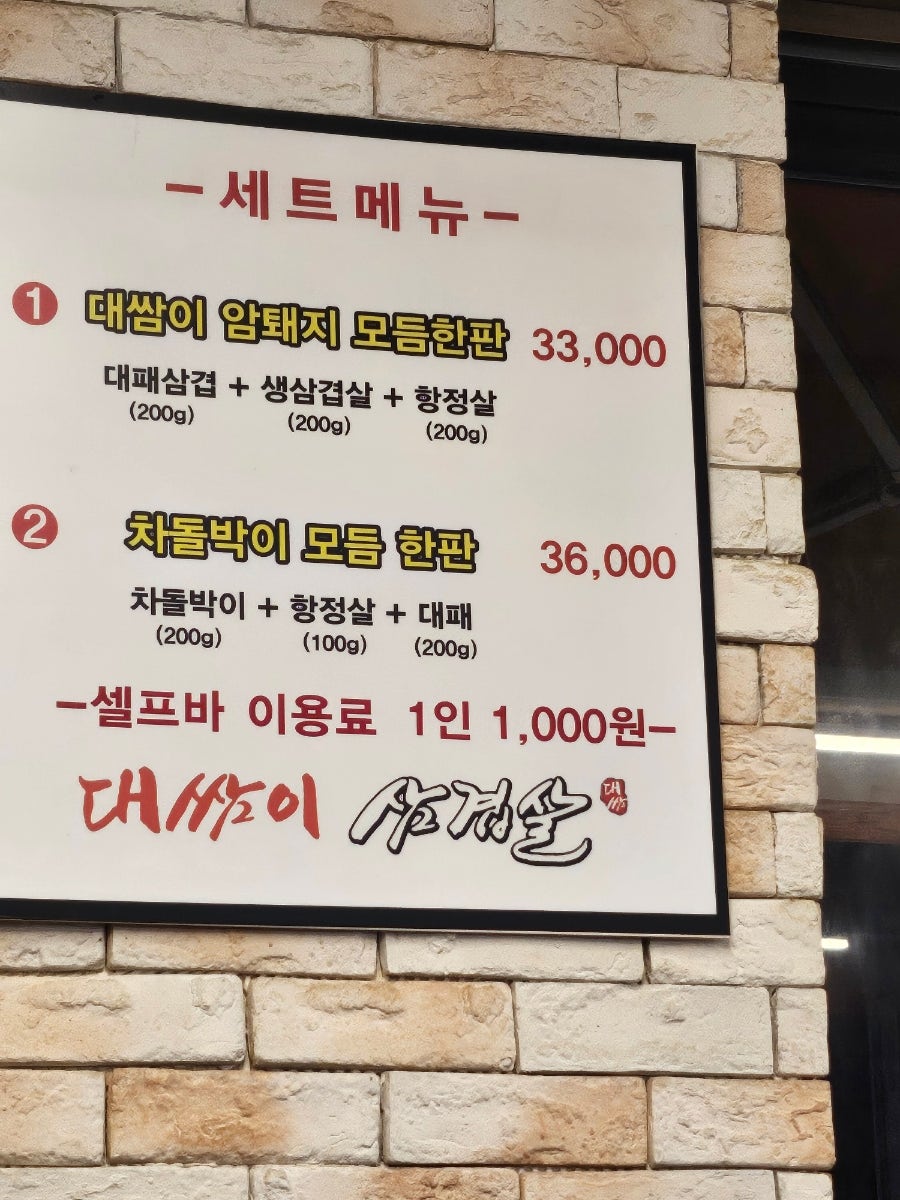 -세트메뉴-
1 대쌈이 암퇘지 모듬한판 33,000
대패삼겹 + 생삼겹살 + 항정살
(200g) (200g) (200g)
2 차돌박이 모듬 한판 36,000
차돌박이 + 항정살 + 대패
(200g) (100g) (200g)
-셀프바 이용료 1인 1,000원-
대쌈이 삼겹살 대쌈